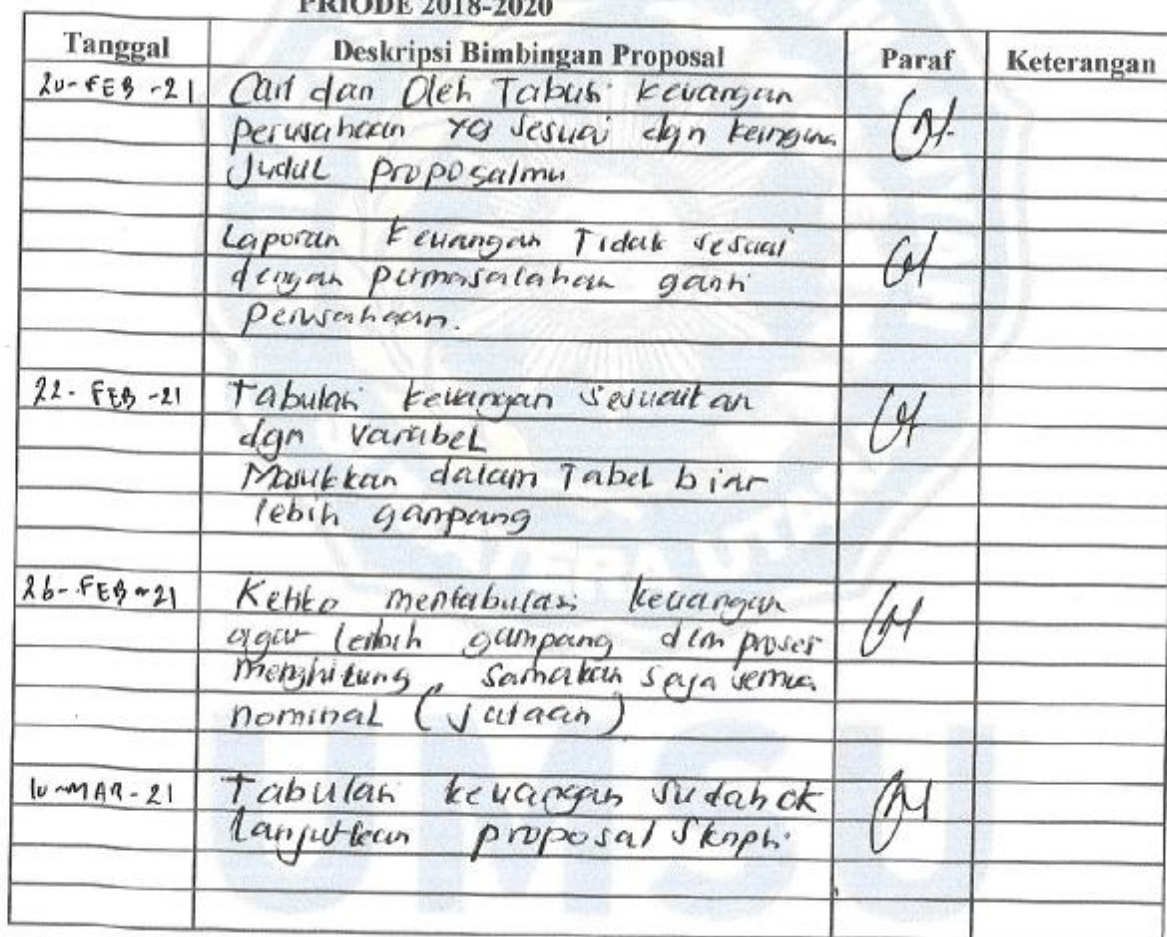 PRIODE 2018-2020
Tanggal Deskripsi Bimbingan Proposal Paraf Keterangan
20-FEB-21 Cari dan Oleh Tabusi keuangan
perusahaan yg sesuai dgn keingina
Judul proposalmu
Laporan keuangan Tidak sesuai
dengan permasalahan ganti
perusahaan.
22-FEB-21 Tabulasi keuangan sesuaikan
dgn Variabel
Masukkan dalam Tabel biar
lebih gampang
26-FEB-21 Ketika mentabulasi keuangan
agar lebih gampang dlm proses
menghitung, samakan saja semua
nominal (jutaan)
10-MAR-21 Tabulasi keuangan sudah ok
lanjutkan proposal skripsi.
UMSU